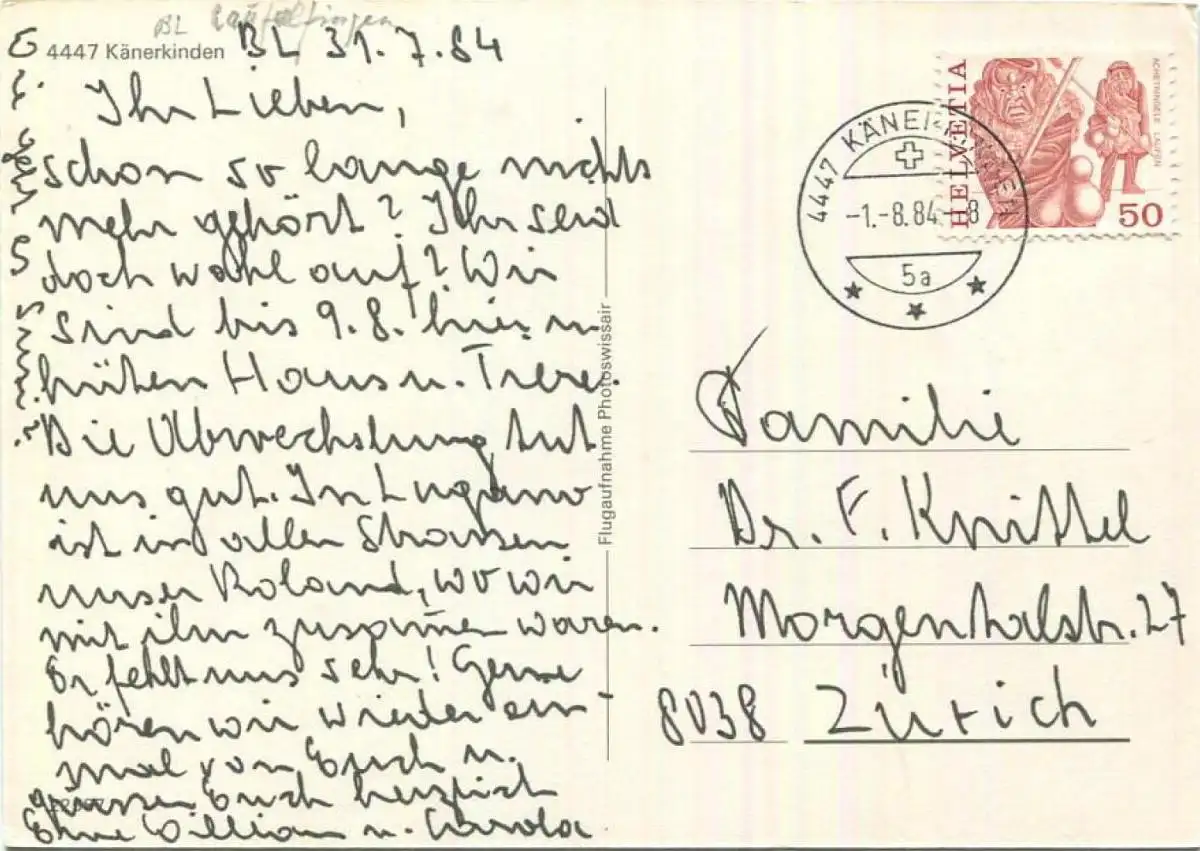 BL Läufelfingen
4447 Känerkinden BL 31.7.84
Ihr Lieben,
schon so lange nichts
mehr gehört? Ihr seid
doch wohl auf? Wir
sind bis 9.8. hier u.
hüten Haus u. Tiere.
Die Abwechslung tut
uns gut. In Lugano
ist in allen Strassen
unser Roland, wo wir
mit ihm zusamen waren.
Er fehlt uns sehr! Gerne
hören wir wieder ein-
mal von Euch u.
grüssen Euch herzlich
Eure Willian u. Carola
Flugaufnahme Photoswissair
HELVETIA
ACHETRINGELE LAUPEN
50
4447 KÄNERKINDEN
-1.-8.84-8
5a
Familie
Dr. F. Knittel
Morgentalstr. 27
8038 Zürich